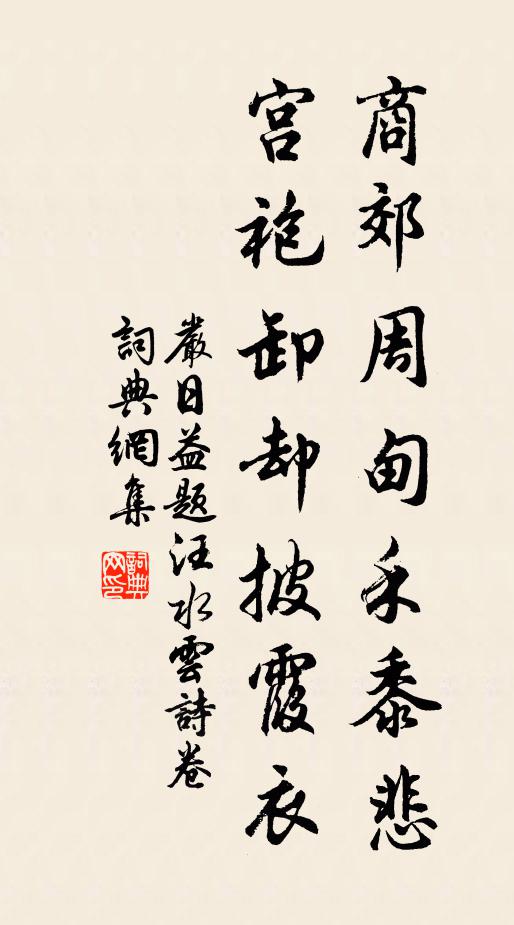 商郊周甸禾黍悲
宫袍卸却披霞衣
嚴日益題汪水雲詩卷
詞典網集
詞典
网印